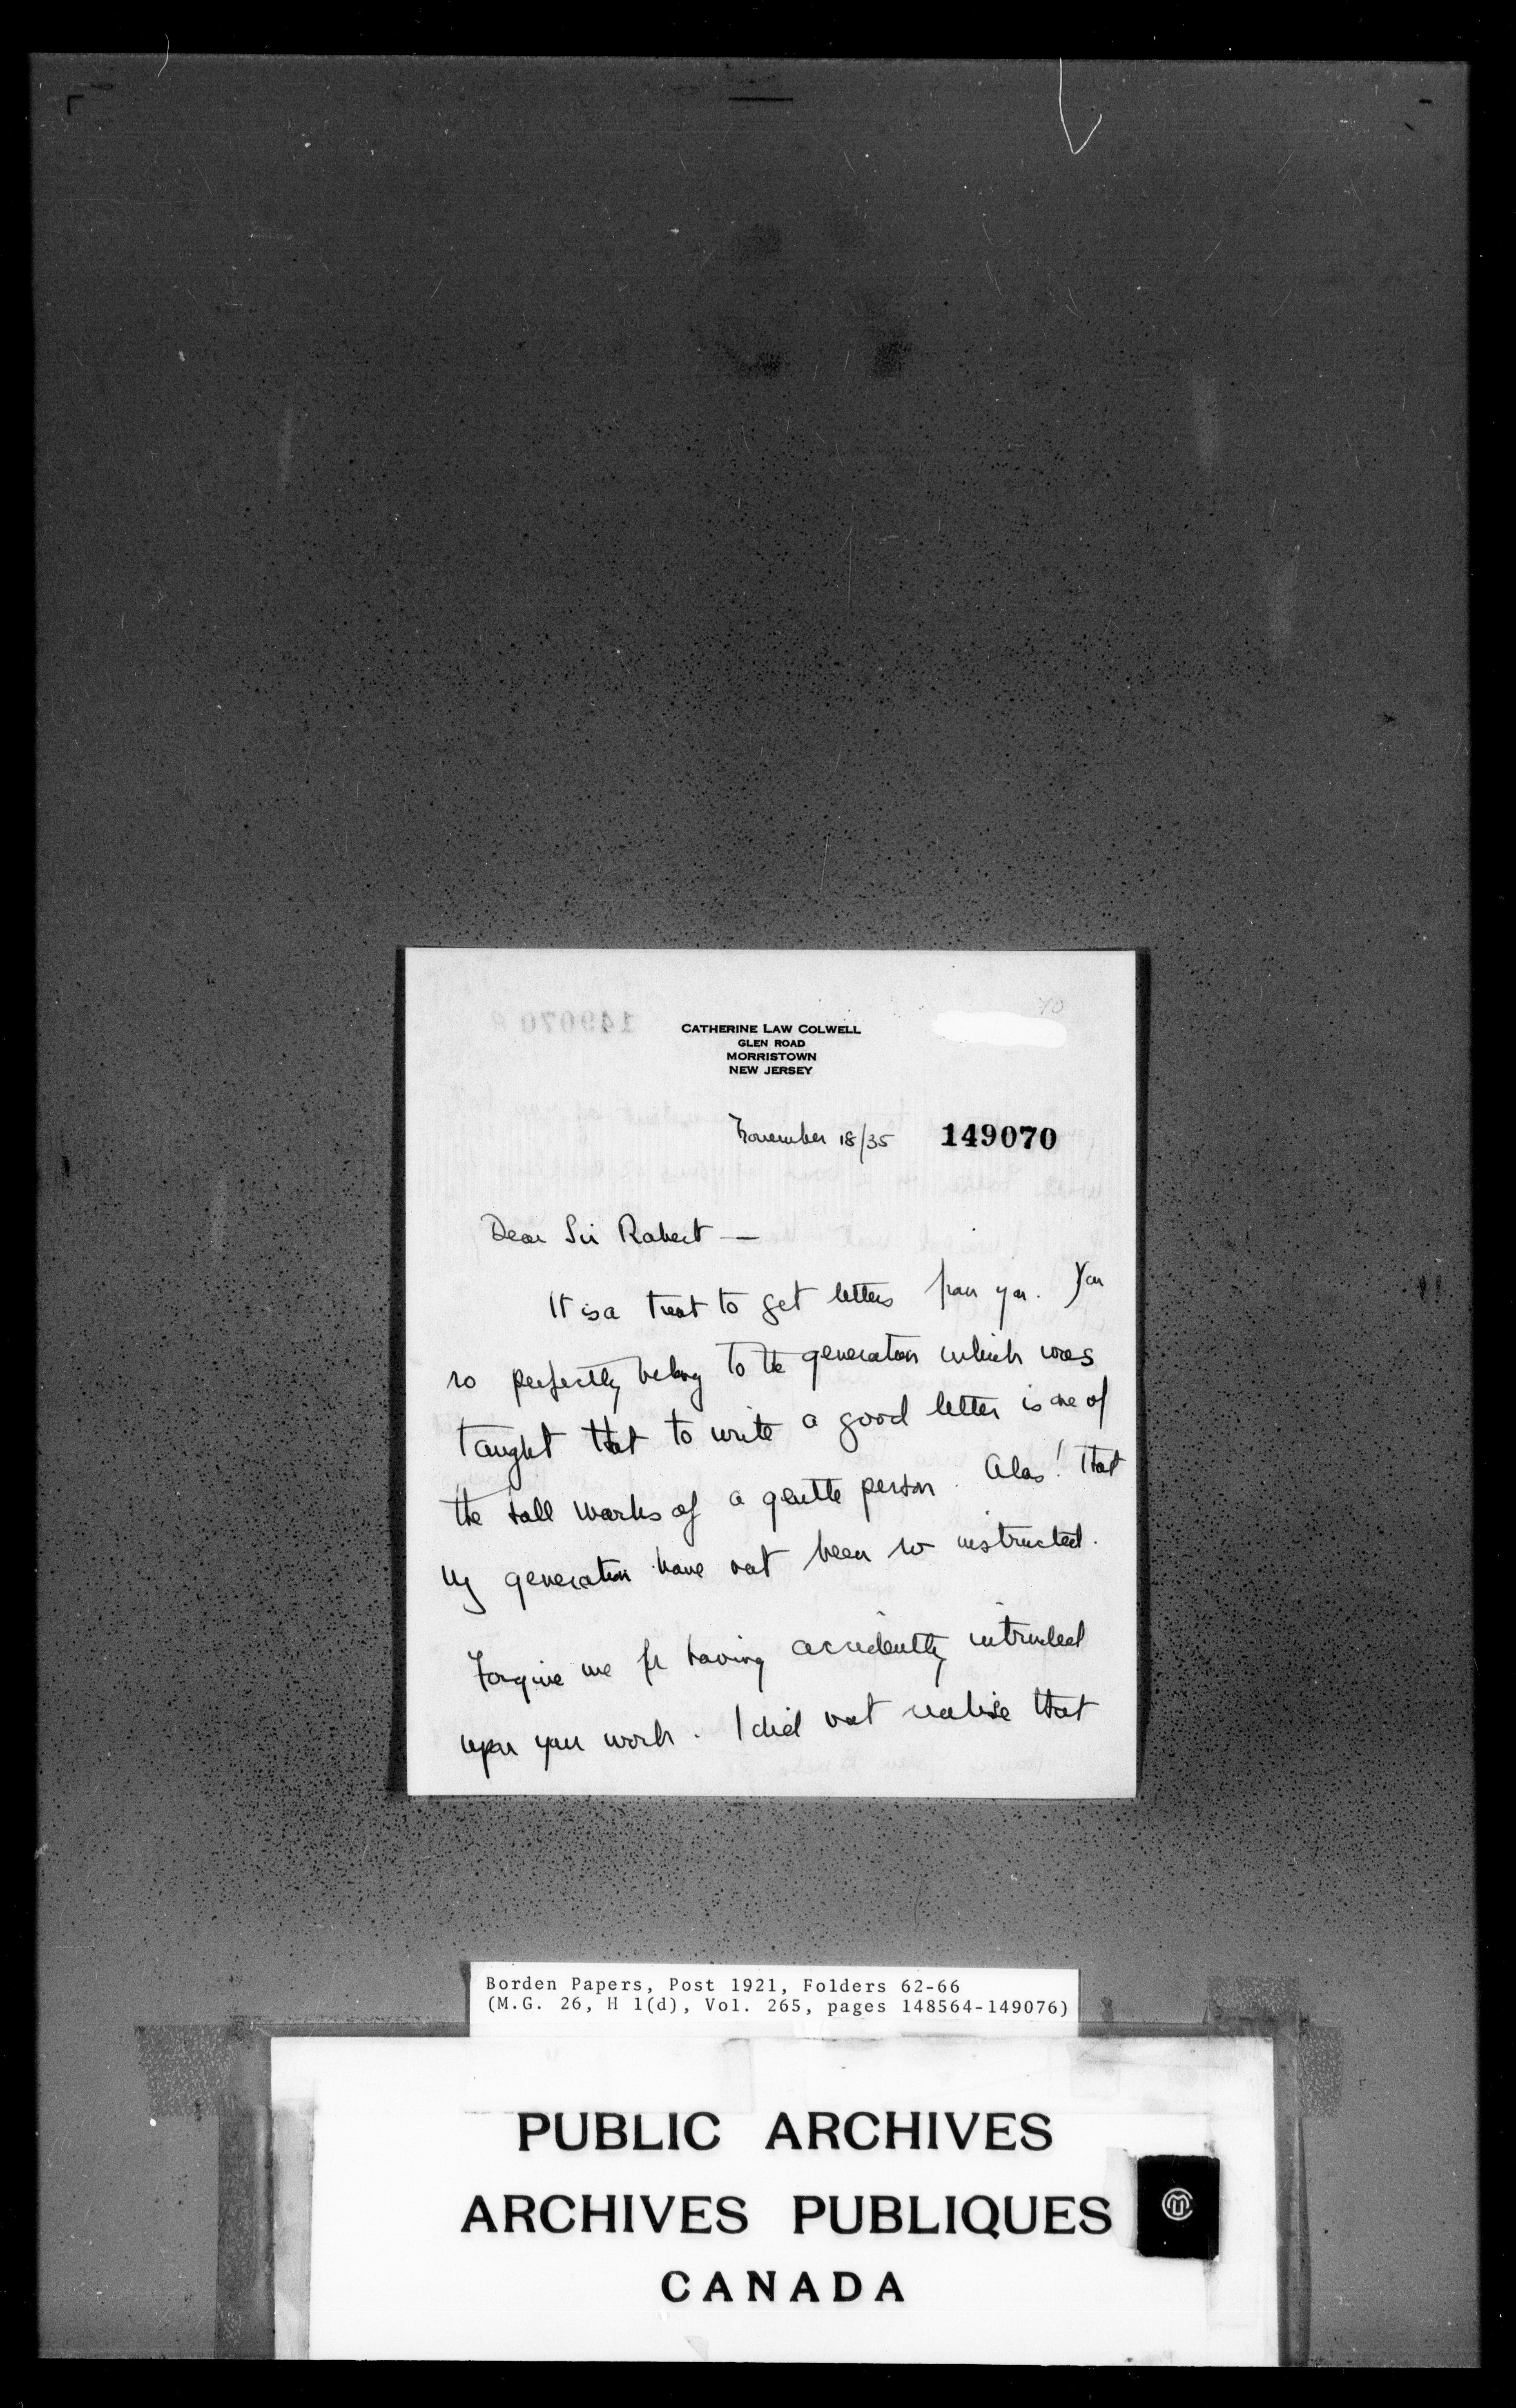 70
CATHERINE LAW COLWELL
GLEN ROAD
MORRISTOWN
NEW JERSEY
November 18/35 149070
Dear Sir Robert —
It is a treat to get letters from you. You
so perfectly belong to the generation which was
taught that to write a good letter is one of
the hall marks of a gentle person. Alas! that
my generation have not been so instructed.
Forgive me for having accidently intruded
upon your work. I did not realise that
Borden Papers, Post 1921, Folders 62-66
(M.G. 26, H 1(d), Vol. 265, pages 148564-149076)
PUBLIC ARCHIVES
ARCHIVES PUBLIQUES
CANADA